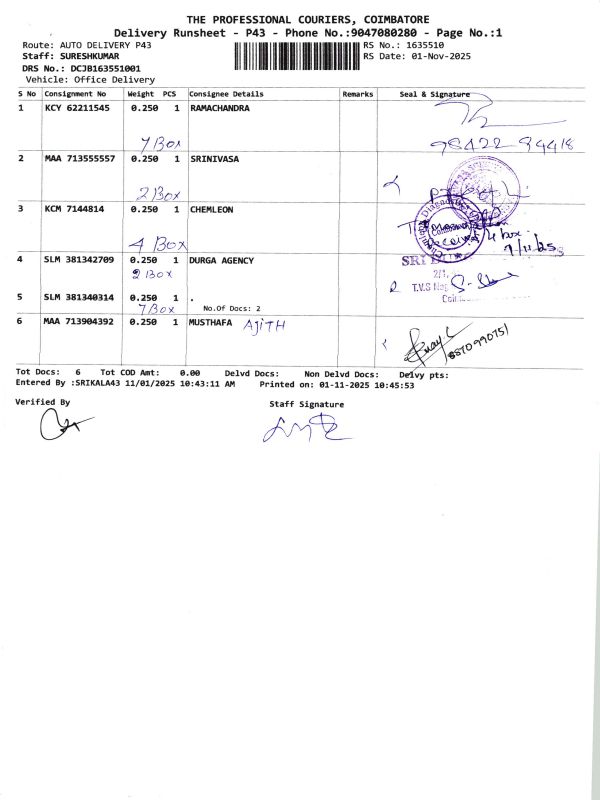 THE PROFESSIONAL COURIERS, COIMBATORE
Delivery Runsheet - P43 - Phone No.:9047080280 - Page No.:1
Route: AUTO DELIVERY P43
RS No.: 1635510
Staff: SURESHKUMAR
RS Date: 01-Nov-2025
DRS No.: DCJB163551001
Vehicle: Office Delivery
S No Consignment No Weight PCS Consignee Details Remarks Seal & Signature
1 KCY 62211545 0.250 1 RAMACHANDRA
7 Box
98422-84418
2 MAA 713555557 0.250 1 SRINIVASA
2 Box
3 KCM 7144814 0.250 1 CHEMLEON
4 Box
4 box
4 SLM 381342709 0.250 1 DURGA AGENCY
2 Box
SRI
T.V.S Nag
5 SLM 381340314 0.250 1 .
7 Box No.Of Docs: 2
6 MAA 713904392 0.250 1 MUSTHAFA AJITH
Tot Docs: 6 Tot COD Amt: 0.00 Delvd Docs: Non Delvd Docs: Delvy pts:
Entered By :SRIKALA43 11/01/2025 10:43:11 AM Printed on: 01-11-2025 10:45:53
Verified By Staff Signature